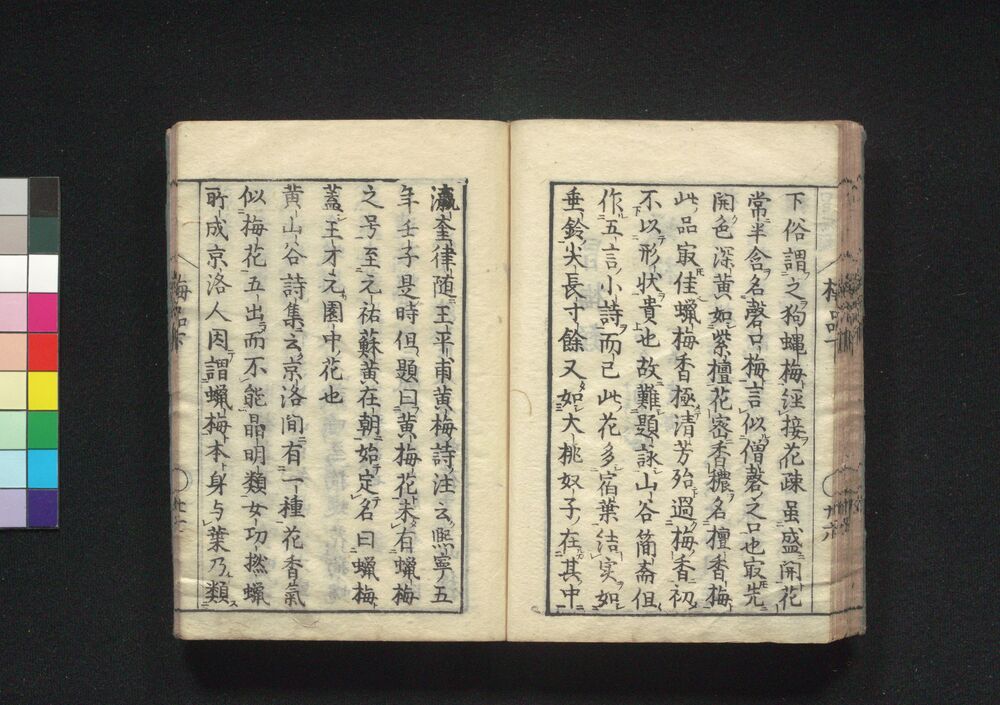 下俗謂之狗蠅梅経接花疎虽盛開花
常半含名磬口梅言似僧磬之口也㝡先
開色深黄如紫檀花密香穠名檀香梅
此品㝡佳蝋梅香極清芳殆過梅香初
不以形状貴也故難題詠山谷簡斎但
作五言小詩而已此花多宿葉結実如
垂鈴尖長寸餘又如大桃奴子在其中
瀛奎律随王平甫黄梅詩注云熈寧五
年壬子是時但題曰黄梅花未有蝋梅
之号至元祐蘇黄在朝始定名曰蝋梅
蓋王才元園中花也
黄山谷詩集云京洛間有一種花香氣
似梅花五出而不能晶明類女功撚蝋
所成京洛人因謂蝋梅本身与葉乃類